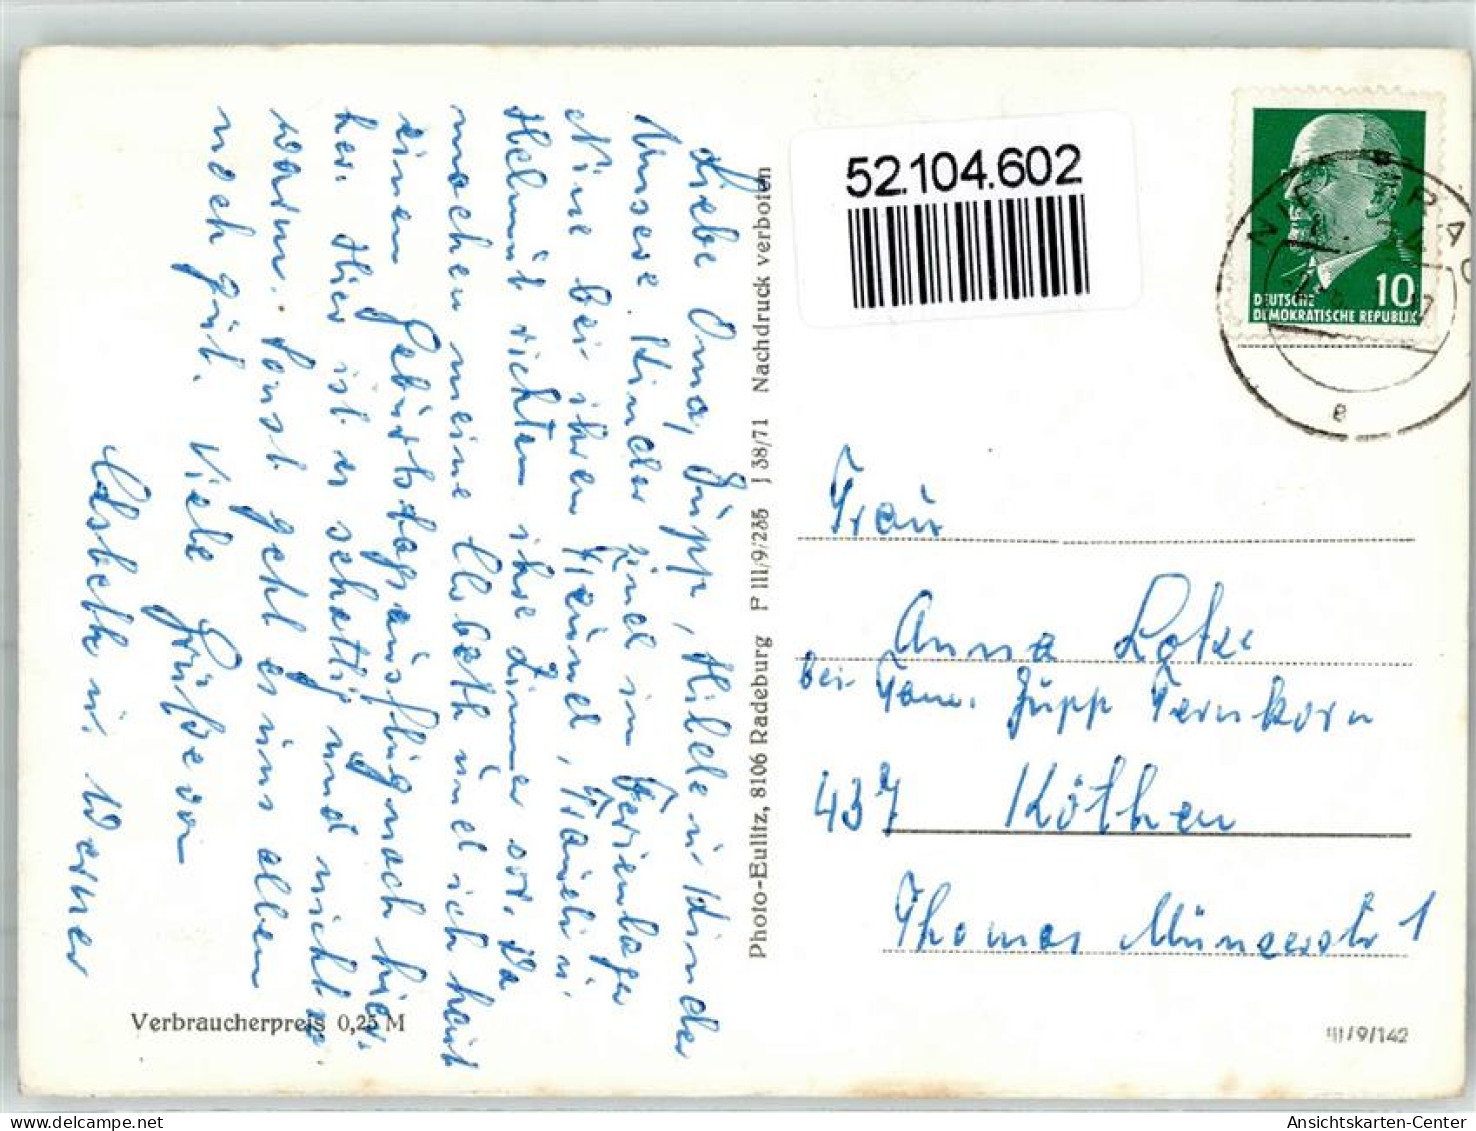 Liebe Oma, Jupp, Hilde u. Kinder
Unsere Kinder sind im Ferienlager
Nine bei ihren Freund,
Helmut richten ihre Zimmer vor. Da
machen meine Elsbeth und ich heut
einen Geburtstagsausflug nach hier
her. Hier ist es schattig und nicht so
warm. Sonst geht es uns allen
noch gut. Viele Grüße von
Elsbeth u. Werner
Verbraucherpreis 0,25 M
Photo-Eulitz, 8106 Radeburg P III/9/235 J 38/71 Nachdruck verboten
52.104.602
10
DEUTSCHE
DEMOKRATISCHE REPUBLIK
e
Frau
Anna Lotze
bei Fam. Jupp Fernkorn
437 Köthen
Thomas Münzerstr 1
III/9/142
Ansichtskarten-Center